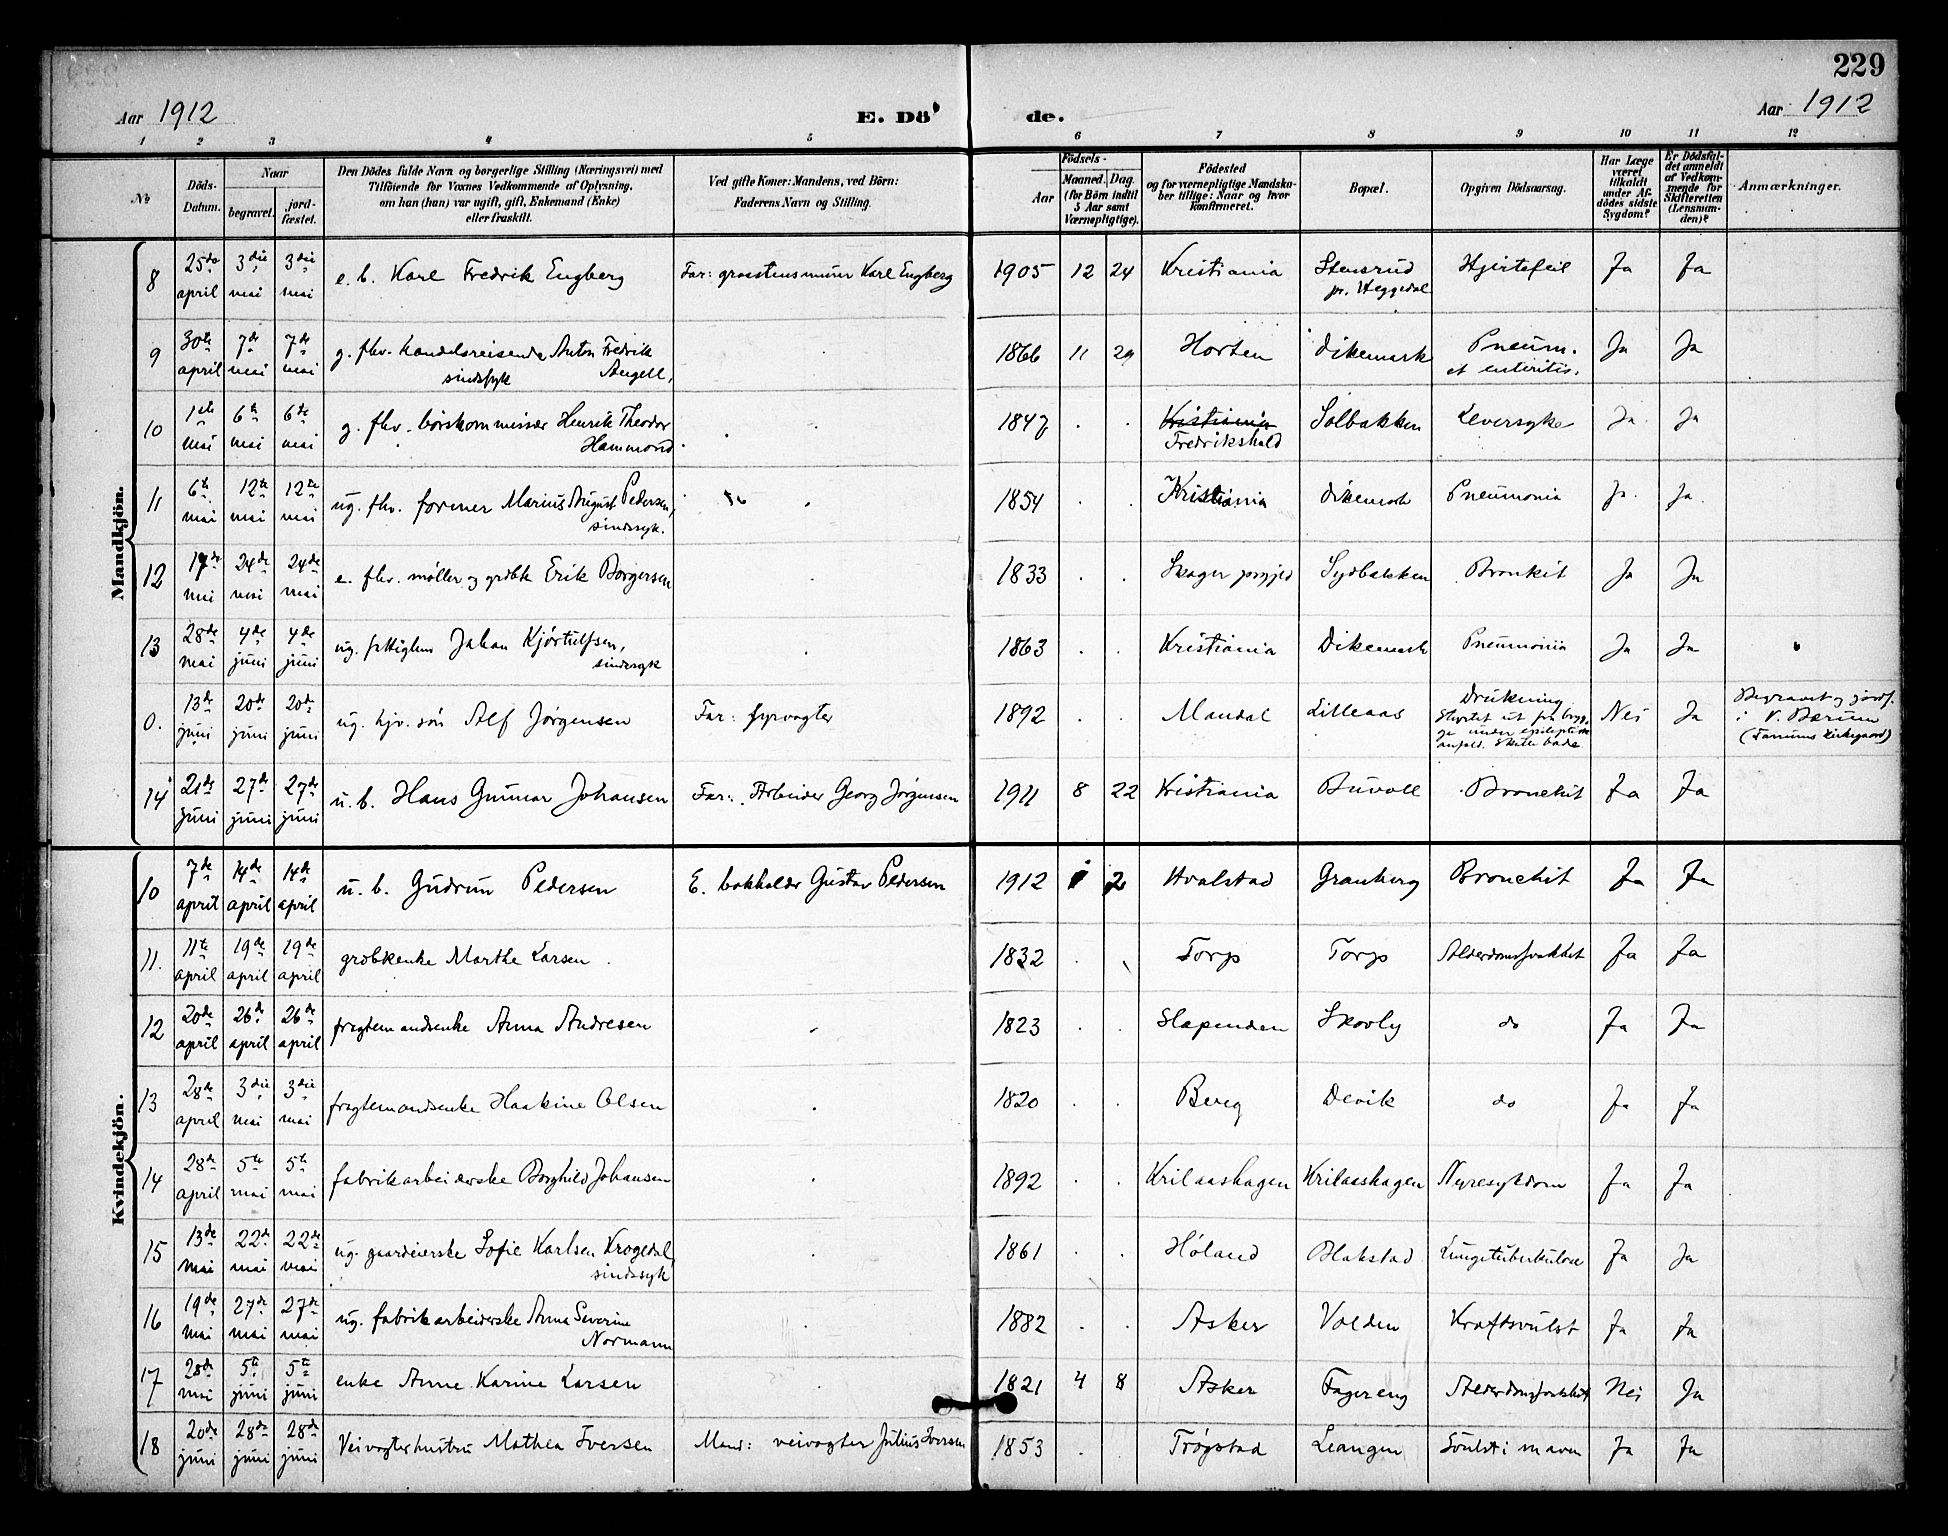 229
Aar 1912
E. Dö
de.
Aar 1912
1 2 3 4 5 6 7 8 9 10 11 12
№
Döds-
Datum.
Naar
begravet.
jord-
fæstet.
Den Dödes fulde Navn og borgerlige Stilling (Næringsvei) med
Tilföiende for Voxnes Vedkommende af Oplysning,
om han (hun) var ugift, gift, Enkemand (Enke)
eller fraskilt.
Ved gifte Koner: Mandens, ved Börn:
Faderens Navn og Stilling.
Födsels-
Aar
Maaned. Dag.
(for Börn indtil
5 Aar samt
Værnepligtige).
Födested
og for værnepligtige Mandska-
ber tillige: Naar og hvor
konfirmeret.
Bopæl.
Opgiven Dödsaarsag.
Har Læge
været
tilkaldt
under Af-
dödes sidste
Sygdom?
Er Dödsfal-
det anmeldt
af Vedkom-
mende for
Skifteretten
(Lensman-
den)?
Anmærkninger.
Mandkjön.
8 25de april 3die mai 3die mai e. b. Karl Fredrik Engberg Far: graastensmurer Karl Engberg 1905 12 24 Kristiania Stensrud Hjertefeil Ja Ja
pr. Heggedal
9 30te april 7de mai 7de mai g. fhv. handelsreisende Anton Fredrik 1866 11 29 Horten Dikemark Pneum. Ja Ja
sindssyk Angell, et enteritis.
10 1ste mai 6te mai 6te mai g. fhv. börskommissær Henrik Theodor 1847 Kristiania Solbakken Leversyke Ja Ja
Hammond. Fredrikshald
11 6te mai 12te mai 12te mai ug. fhv. former Marius August Pedersen, 1854 Kristiania Dikemark Pneumonia Ja Ja
sindssyk.
12 17de mai 24de mai 24de mai e. fhv. møller og grdbk Erik Borgersen 1833 Skoger prgjed Sydbakken Bronkit Ja Ja
13 28de mai 4de juni 4de juni ug. fattiglem Johan Kjörtulfsen, 1863 Kristiania Dikemark Pneumonia Ja Ja
sindssyk
0. 13de juni 20de juni 20de juni ug. hjv. sön Alf Jørgensen Far: fyrvagter 1892 Mandal Lilleaas Drukning Nei Ja Begravet og jordf.
Styrtet ut fra bryg- i V. Bærum
ge under epileptisk (Tanums kirkegaard)
anfald. Skulde bade
14 21de juni 27de juni 27de juni u. b. Hans Gunnar Johansen Far: Arbeider Georg Jørgensen 1911 8 22 Kristiania Buvoll Bronchit Ja Ja
Kvindekjön.
10 7de april 14de april 14de april u. b. Gudrun Pedersen E. bokholder Gustav Pedersen 1912 1 2 Hvalstad Granberg Bronchit Ja Ja
11. 11te april 19de april 19de april grdbkenke Marthe Larsen 1832 Torp Torp Alderdomssvakhet Ja Ja
12 20de april 26de april 26de april fragtemandsenke Anna Andresen 1823 Slependen Skovly do Ja Ja
13 28de april 3die mai 3die mai fragtemandsenke Haakine Olsen 1820 Berg Devik do Ja Ja
14 28de april 5te mai 5te mai fabrikarbeiderske Borghild Johansen 1892 Krilaashagen Krilaashagen Nyresykdom Ja Ja
15 13de mai 22de mai 22de mai ug. gaardeierske Sofie Karlsen Krogedal, 1861 Høland Blakstad Lungetuberkulose Ja Ja
sindssyk
16 19de mai 27de mai 27de mai ug. fabrikarbeiderske Anna Severine 1882 Asker Volden Kræftsvulst Ja Ja
Normann
17 28de mai 5te juni 5te juni enke Anne Karine Larsen 1821 4 8 Asker Fagereng Alderdomssvakhet Nei Ja
18 20de juni 28de juni 28de juni Veivogterhustru Mathea Iversen Mand: veivogter Julius Iversen 1853 Trøgstad Leangen Svulst i maven Ja Ja